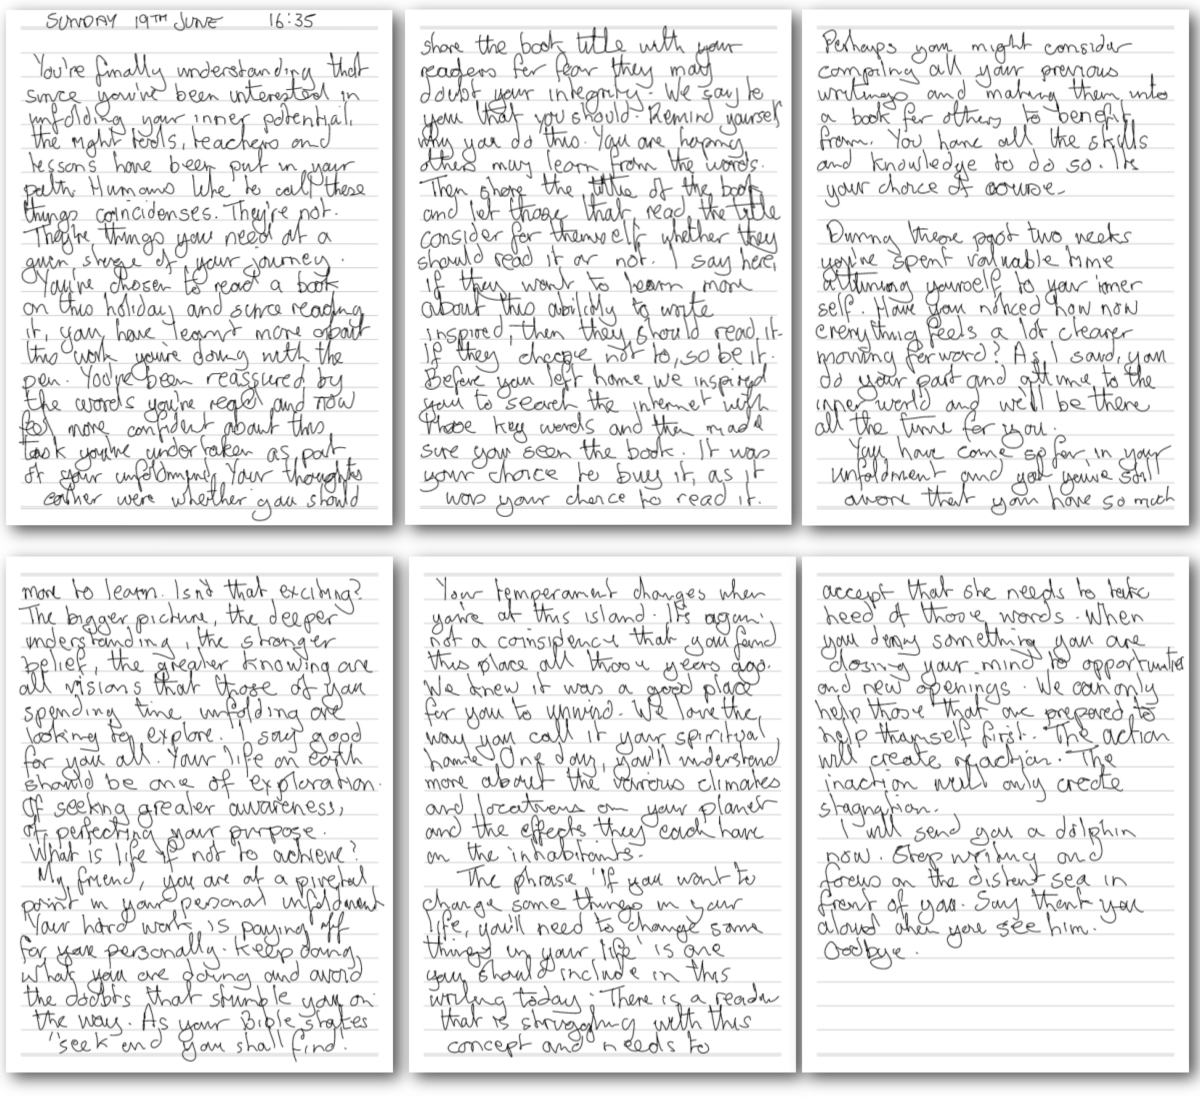 SUNDAY 19TH JUNE 16:35
You're finally understanding that
since you've been interested in
unfolding your inner potential,
the right tools, teachers and
lessons have been put in your
path. Humans like to call these
things coincidenses. They're not.
They're things you need at a
given stage of your journey.
You've chosen to read a book
on this holiday and since reading
it, you have learnt more about
this work you're doing with the
pen. You've been reassured by
the words you've read and now
feel more confident about this
task you've undertaken as part
of your unfoldment. Your thoughts
earlier were whether you should
share the book title with your
readers for fear they may
doubt your integrity. We say to
you that you should. Remind yourself
why you do this. You are hoping
others may learn from the words.
Then share the title of the book
and let those that read the title
consider for themself whether they
should read it or not. I say here,
if they want to learn more
about this ability to write
inspired, then they should read it.
If they choose not to, so be it.
Before you left home, we inspired
you to search the internet with
those key words and then made
sure you seen the book. It was
your choice to buy it, as it
was your choice to read it.
Perhaps you might consider
compiling all your previous
writings and making them into
a book for others to benefit
from. You have all the skills
and knowledge to do so. Its
your choice of course.
During these past two weeks
you've spent valuable time
attuning yourself to your inner
self. Have you noticed how now
everything feels a lot clearer
moving forward? As I said, you
do your part and attune to the
inner world and we'll be there
all the time for you.
You have come so far in your
unfoldment and yet you're still
aware that you have so much
more to learn. Isn't that exciting?
The bigger picture, the deeper
understanding, the stronger
belief, the greater knowing are
all visions that those of you
spending time unfolding are
looking to explore. I say good
for you all. Your life on earth
should be one of exploration.
Of seeking greater awareness,
of perfecting your purpose.
What is life if not to achieve?
My friend, you are at a pivotal
point in your personal unfoldment
Your hard work is paying off
for you personally. Keep doing
what you are doing and avoid
the doubts that stumble you on
the way. As your Bible states
'seek and you shall find'.
Your temperament changes when
you're at this island. It's again,
not a coinsidence that you found
this place all those years ago.
We knew it was a good place
for you to unwind. We love the
way you call it your spiritual
home. One day, you'll understand
more about the various climates
and locations on your planet
and the effects they each have
on the inhabitants.
The phrase 'if you want to
change some things in your
life, you'll need to change some
things in your life' is one
you should include in this
writing today. There is a reader
that is struggling with this
concept and needs to
accept that she needs to take
heed of those words. When
you deny something you are
closing your mind to opportunities
and new openings. We can only
help those that are prepared to
help themself first. The action
will create reaction. The
inaction will only create
stagnation.
I will send you a dolphin
now. Stop writing and
focus on the distant sea in
front of you. Say thank you
aloud when you see him.
Goodbye.